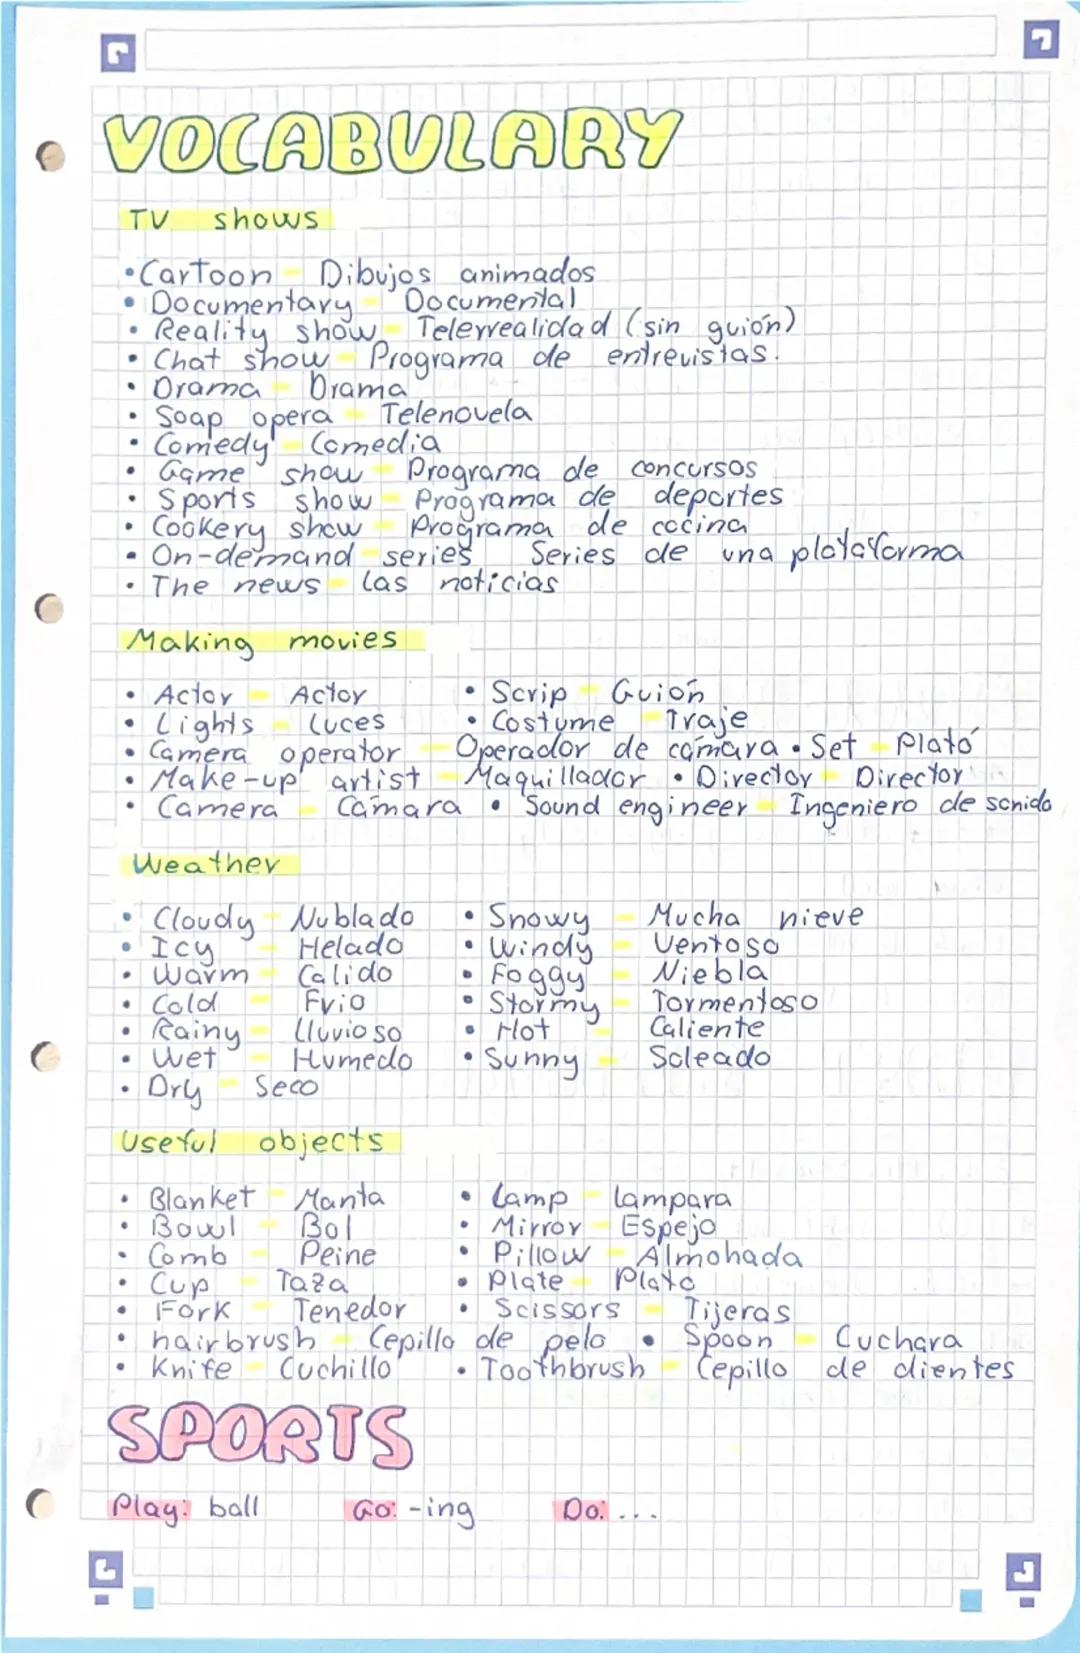 VOCABULARY
TV shows
• Cartoon - Dibujos animados
• Documentary - Documental
• Reality show - Telerrealidad (sin guión)
• Chat show - Programa de entrevistas.
• Drama - Drama
• Soap opera - Telenovela
• Comedy - Comedia
• Game show - Programa de concursos
• Sports show - Programa de deportes
• Cookery show - Programa de cocina
• On-demand series Series de una plataforma
• The news - las noticias
Making movies
• Actor - Actor • Scrip - Guión
• Lights - Luces • Costume - Traje
• Camera operator - Operador de cámara • Set - Plató
• Make-up artist - Maquillador • Director - Director
• Camera - Cámara • Sound engineer - Ingeniero de sonido
Weather
• Cloudy - Nublado • Snowy - Mucha nieve
• Icy - Helado • Windy - Ventoso
• Warm - Calido • Foggy - Niebla
• Cold - Frio • Stormy - Tormentoso
• Rainy - Lluvioso • Hot - Caliente
• Wet - Humedo • Sunny - Soleado
• Dry - Seco
Useful objects
• Blanket - Manta • Lamp - Lampara
• Bowl - Bol • Mirror - Espejo
• Comb - Peine • Pillow - Almohada
• Cup - Taza • Plate - Plato
• Fork - Tenedor • Scissors - Tijeras
• hairbrush - Cepillo de pelo • Spoon - Cuchara
• Knife - Cuchillo • Toothbrush - Cepillo de dientes
SPORTS
Play: ball Go: -ing Do: ...